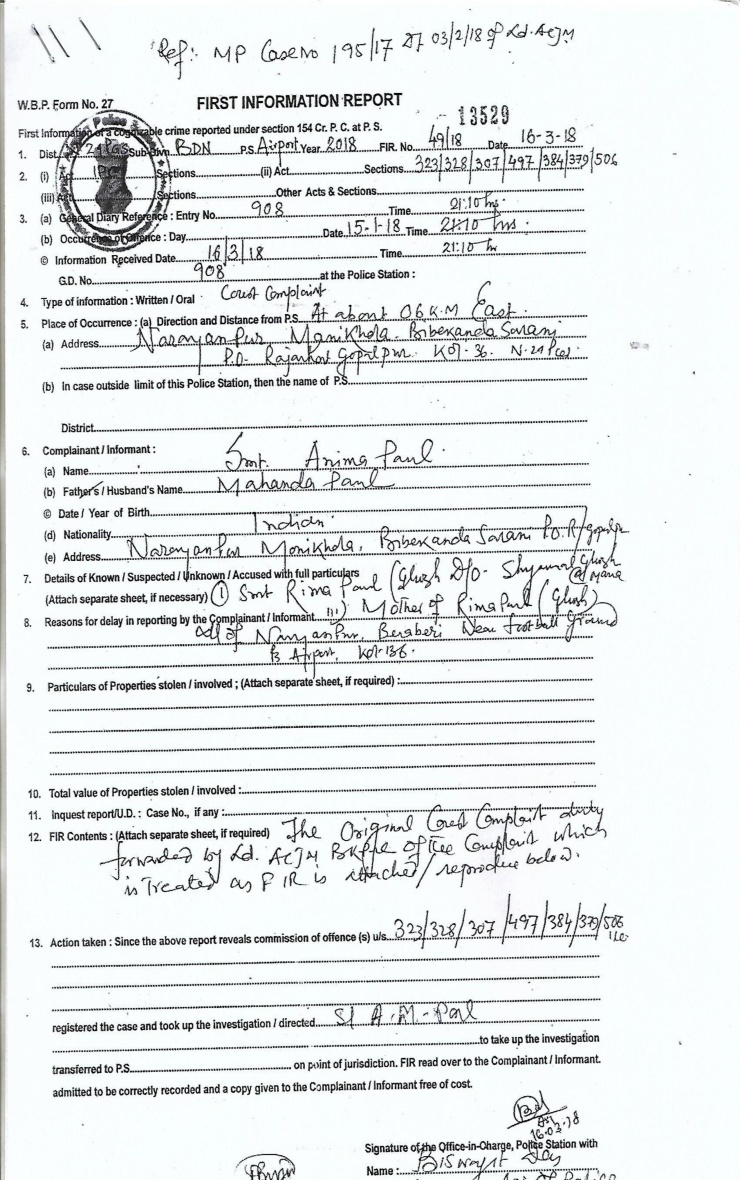 Ref: MP Case no 195/17 dt 03/2/18 of Ld. ACJM
W.B.P. Form No. 27 FIRST INFORMATION REPORT 13529
First Information of a cognizable crime reported under section 154 Cr. P. C. at P. S.
1. Dist. 24 PGS Sub-Divn. BDN P.S. Airport Year 2018 FIR. No. 49/18 Date 16-3-18
2. (i) Act IPC Sections (ii) Act Sections 323/328/307/497/384/379/506
(iii) Act Sections Other Acts & Sections
3. (a) General Diary Reference : Entry No. 908 Time 21:10 hrs.
(b) Occurrence of Offence : Day Date 15-1-18 Time 21:10 hrs.
© Information Received Date 16/3/18 Time 21:10 hr
G.D. No. 908 at the Police Station :
4. Type of information : Written / Oral Court Complaint
5. Place of Occurrence : (a) Direction and Distance from P.S. At about 06 K.M East.
(a) Address Narayanpur Manikhola, Bibekanda Sarani
P.O- Rajarhat Gopalpur. Kol-36. N-24 Pgs.
(b) In case outside limit of this Police Station, then the name of P.S.
District
6. Complainant / Informant :
(a) Name Smt. Anima Paul.
(b) Father's / Husband's Name Mahanda Paul
© Date / Year of Birth
(d) Nationality Indian
(e) Address Narayanpur Monikhola, Bibekanda Sarani P.O. R/gopalpur
7. Details of Known / Suspected / Unknown / Accused with full particulars
(Attach separate sheet, if necessary) ① Smt Rima Paul (Ghosh) D/O- Shyamal Ghosh @ Mana
8. Reasons for delay in reporting by the Complainant / Informant (ii) Mother of Rima Paul (Ghosh)
all of Narayanpur, Beraberi Near Football ground
PS Airport, Kol-136.
9. Particulars of Properties stolen / involved ; (Attach separate sheet, if required) :
10. Total value of Properties stolen / involved :
11. Inquest report/U.D. : Case No., if any :
12. FIR Contents : (Attach separate sheet, if required) The Original Court Complaint duly
forwarded by Ld. ACJM BKP of the Complaint which
is Treated as FIR is attached / reproduce below.
13. Action taken : Since the above report reveals commission of offence (s) u/s. 323/328/307/497/384/379/506
registered the case and took up the investigation / directed SI A.M. Paul
to take up the investigation
transferred to P.S. on point of jurisdiction. FIR read over to the Complainant / Informant.
admitted to be correctly recorded and a copy given to the Complainant / Informant free of cost.
16-03-18
Signature of the Office-in-Charge, Police Station with
Name : Biswajit Dey